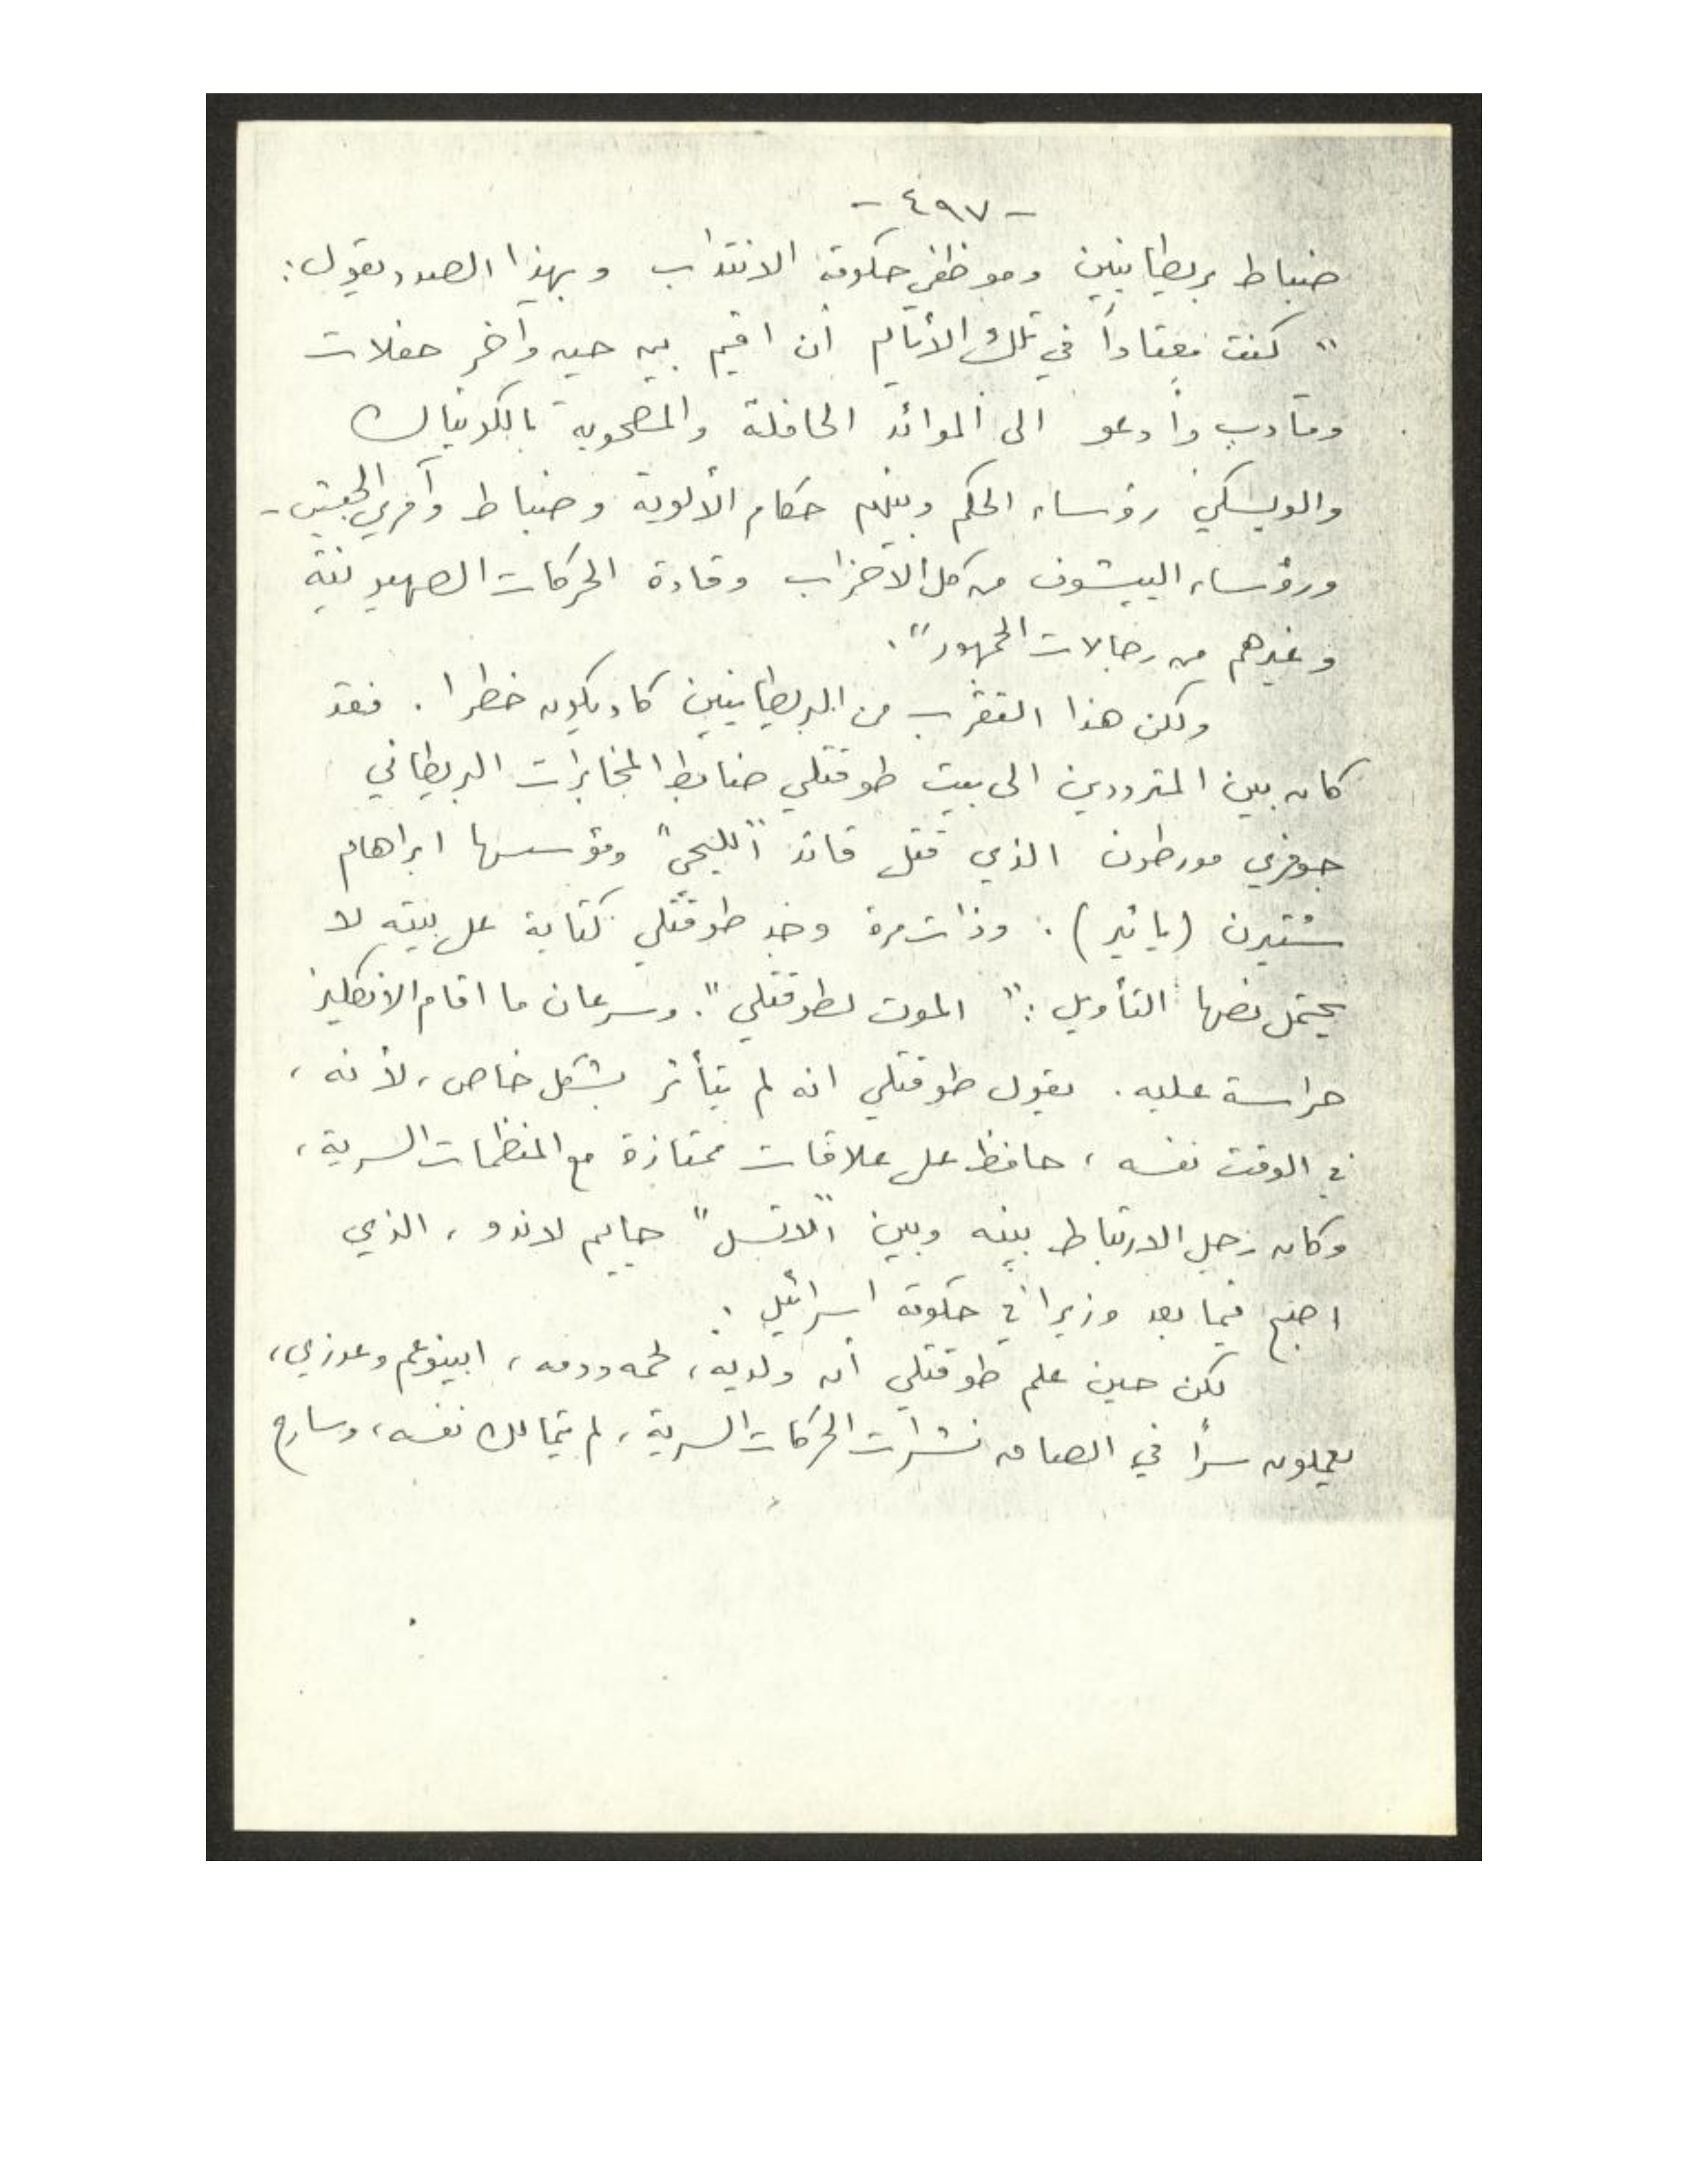 - ٤٩٧ -
ضباط بريطانيين وموظفي حكومة الانتداب وبهذا الصدد يقول:
" كنت معتاداً في تلك الأيام أن اقيم بين حين وآخر حفلات
ومآدب وأدعو الى الموائد الحافلة والمصحوبة بالكونياك
والويسكي رؤساء الحكم وبينهم حكام الألوية وضباط وآمري الجيش -
ورؤساء الييشوف من كل الأحزاب وقادة الحركات الصهيونية
وغيرهم من رجالات الجمهور".
ولكن هذا التقرب من البريطانيين كاد يكون خطرا. فقد
كان بين المترددين الى بيت طوقتلي ضابط المخابرات البريطاني
جوفري مورطون الذي قتل قائد "الليحي" ومؤسسها ابراهام
شتيرن (يائير). وذات مرة وجد طوقتلي كتابة على بيته لا
يحتمل نصها التأويل: " الموت لطوقتلي". وسرعان ما اقام الانكليز
حراسة عليه. يقول طوقتلي انه لم يتأثر بشكل خاص، لأنه،
في الوقت نفسه، حافظ على علاقات ممتازة مع المنظمات السرية،
وكان رجل الارتباط بينه وبين "الاتسل" حاييم لاندو، الذي
اصبح فيما بعد وزيرا في حكومة اسرائيل.
لكن حين علم طوقتلي أن ولديه، لحمه ودمه، ابينوعم وعوزي،
يعملون سراً في الصاق نشرات الحركات السرية، لم يتمالك نفسه، وسارع